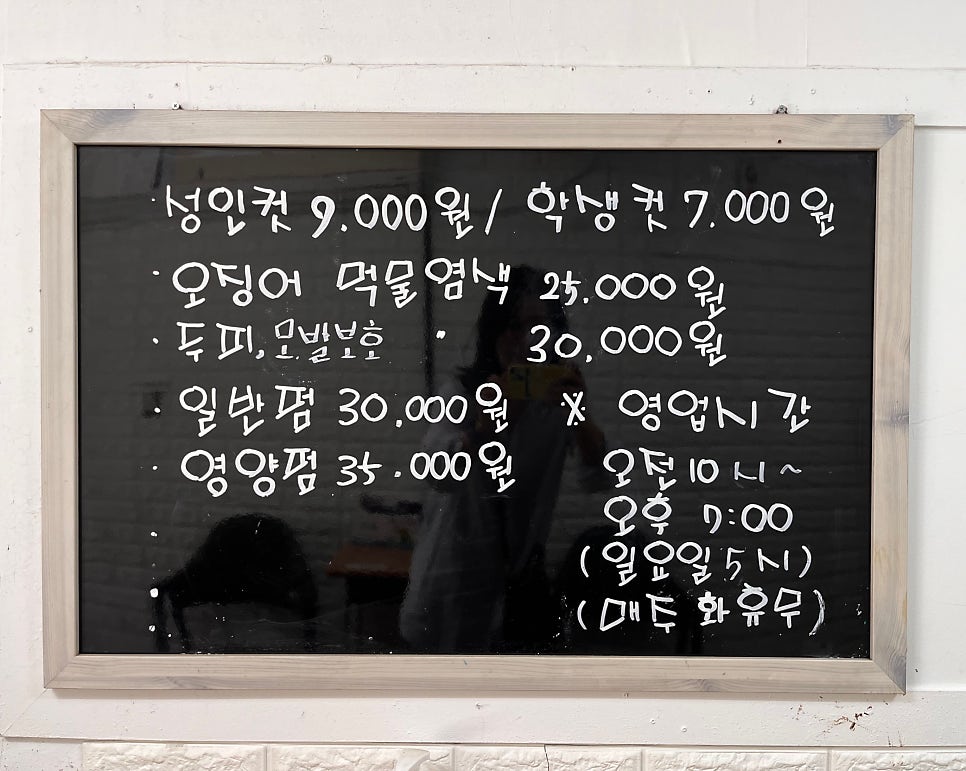 · 성인컷 9.000원 / 학생컷 7.000원
· 오징어 먹물염색 25.000원
· 두피.모발보호 · 30.000원
· 일반펌 30.000원 ※ 영업시간
· 영양펌 35.000원 오전10시~
오후 7:00
(일요일5시)
(매주 화휴무)